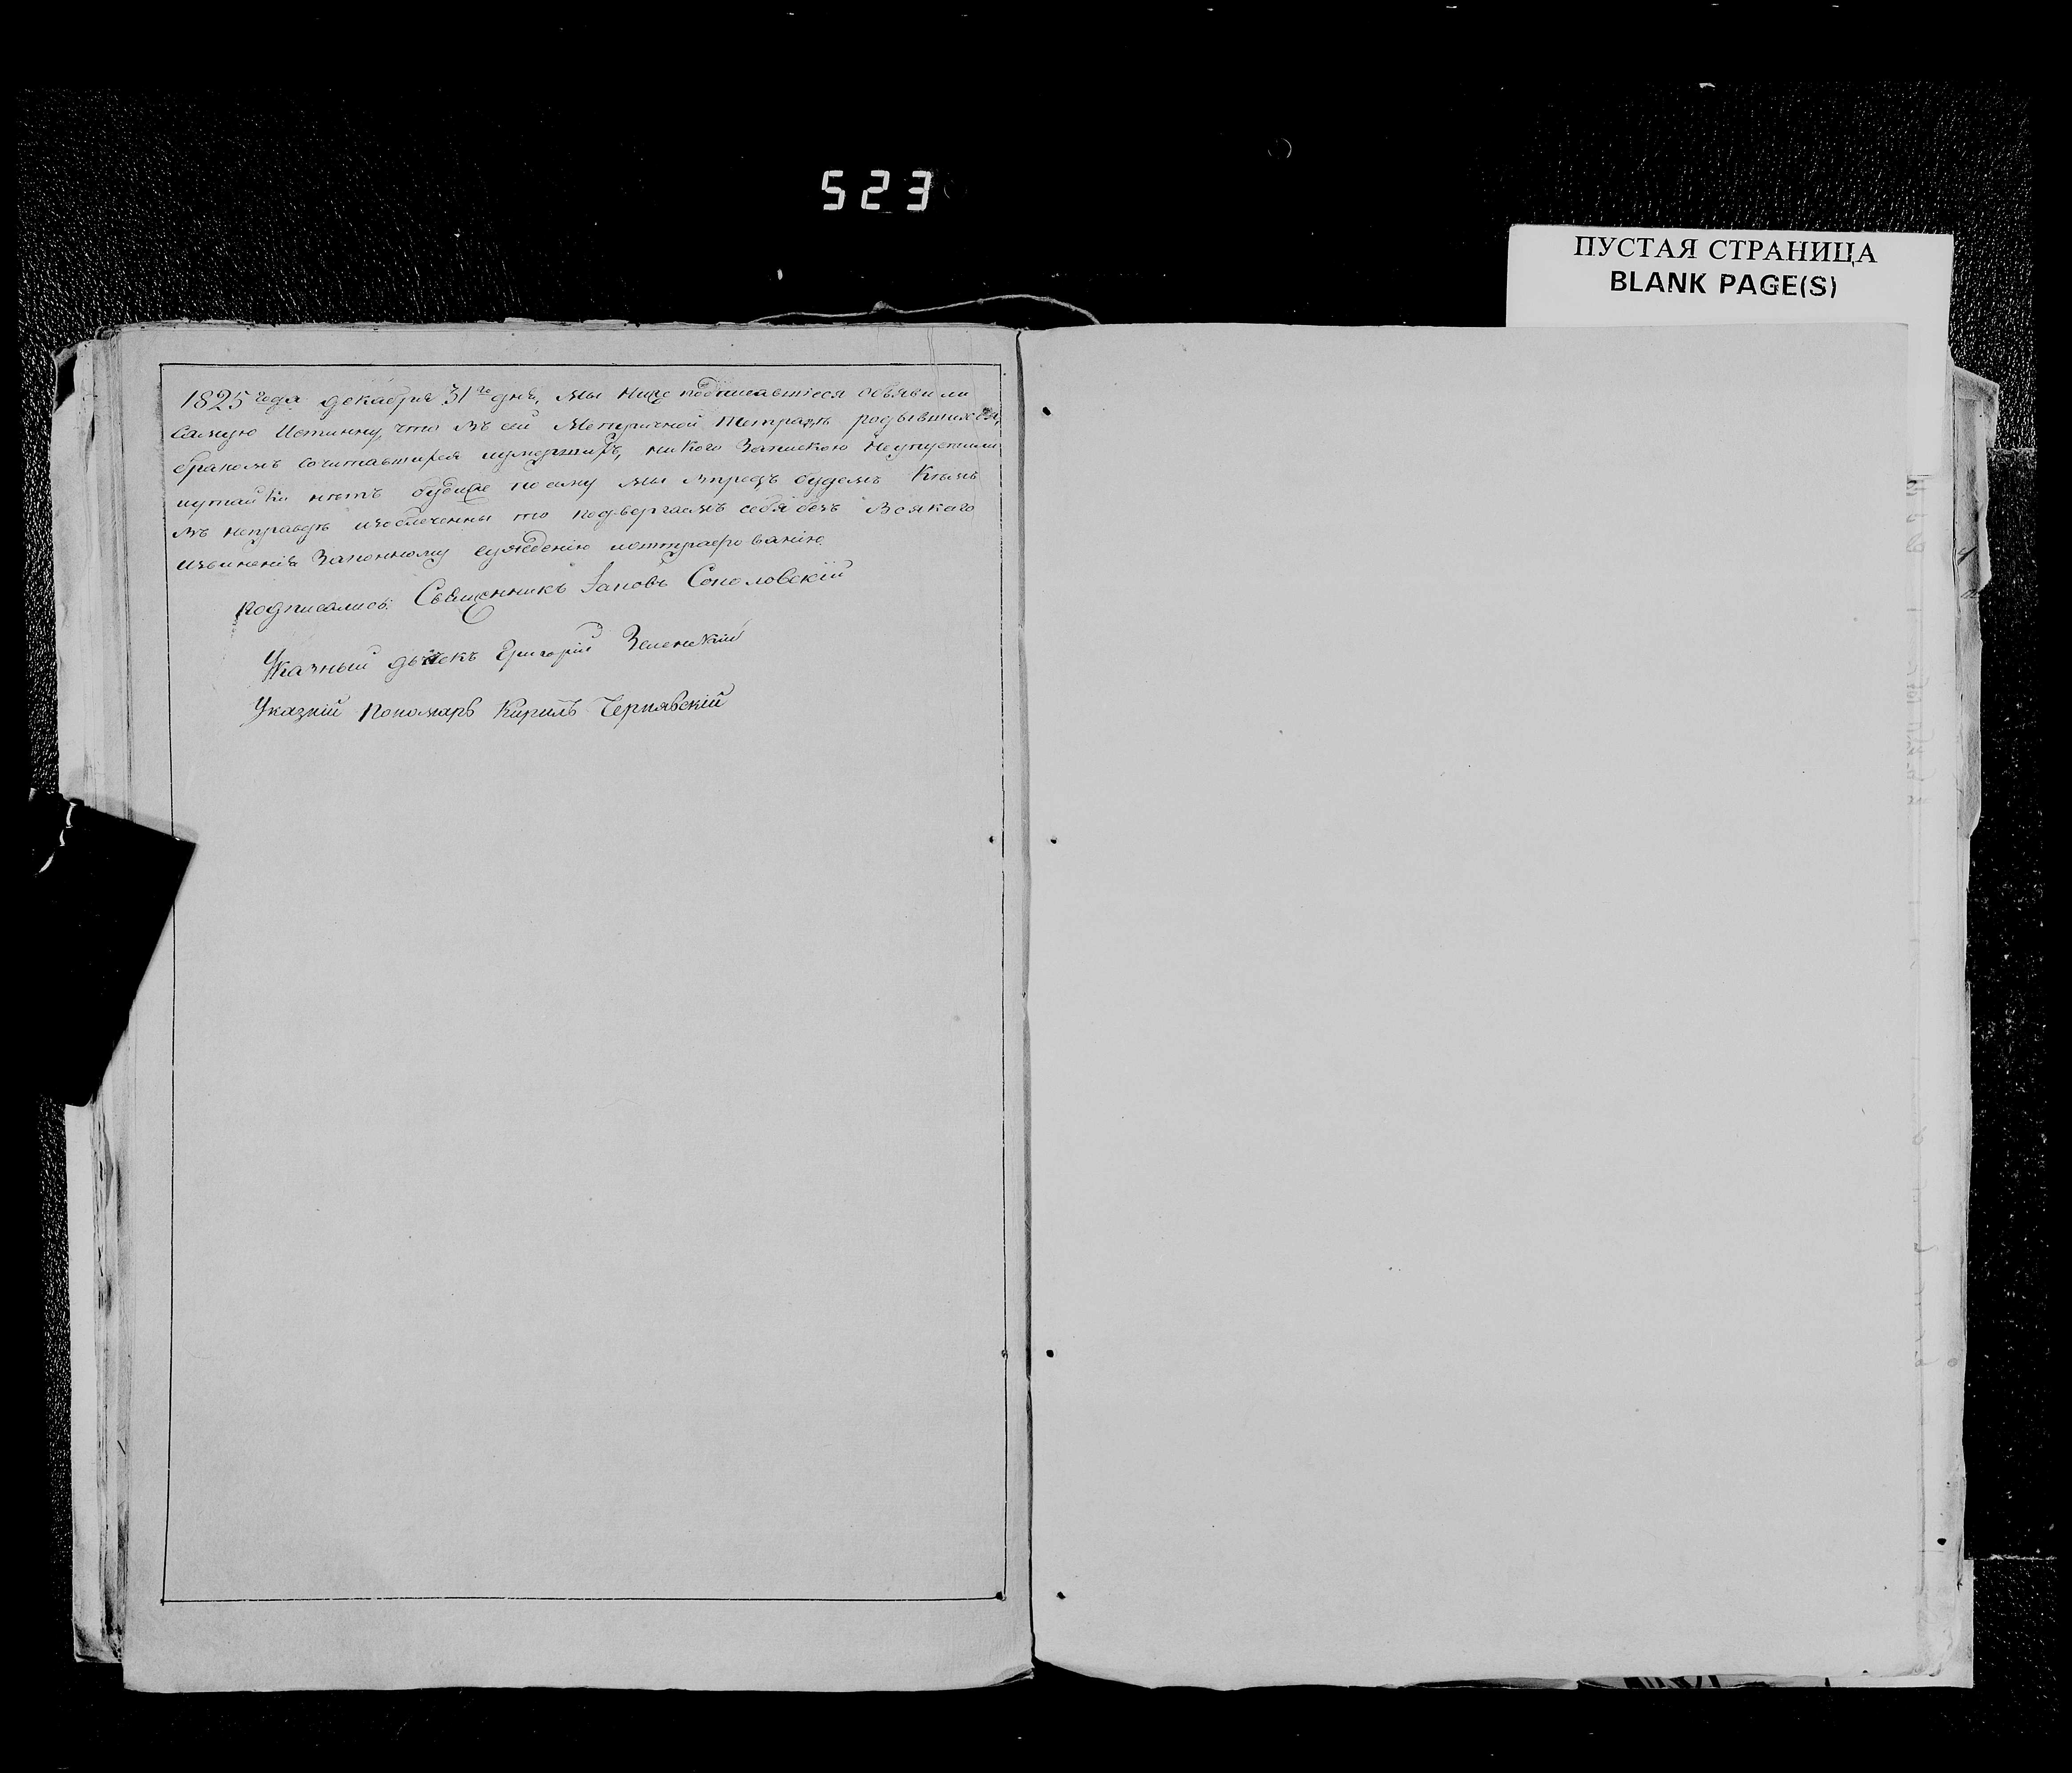 523
ПУСТАЯ СТРАНИЦА
BLANK PAGE(S)
1825 года декабря 31го дня, мы ниже подписавшіеся объявили
самую Истинну, что въ сей Метричной тетради родывшихся,
бракомъ сочитавшихся иумершихъ, никого Запискою Неупустили
иутайки нетъ будиже посему мы впредъ будемъ Кемъ
въ неправде изобличенны то подвергаемъ себя безъ Всякаго
извинения Законному суждению иоштрафованию.
подписались: Священникъ Іаковъ Соколовскій
Указный дьячокъ Григорій Зеленскій
Указній Пономарь Кирилъ Чернявскій